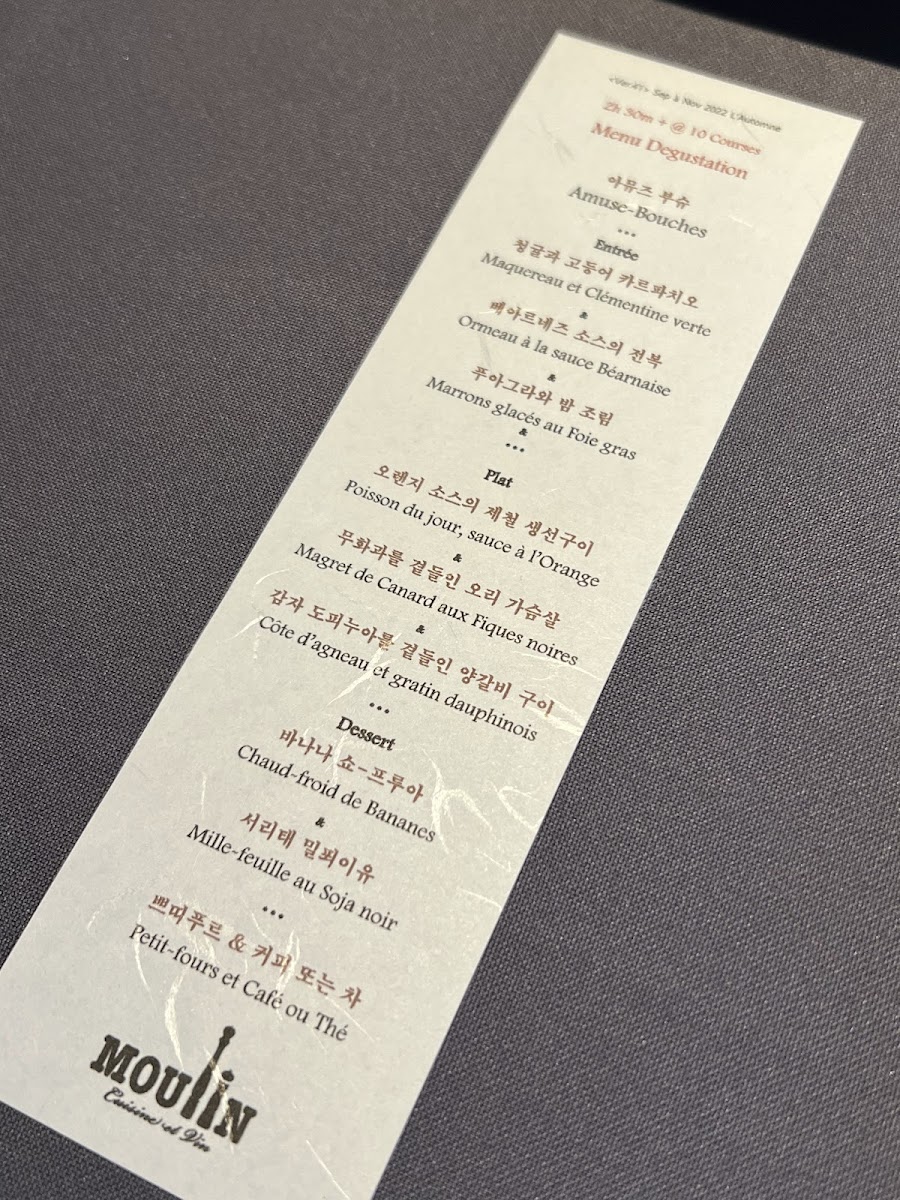 Sep à Nov 2022 L'Automne
2h 30m + @ 10 Courses
Menu Degustation
아뮤즈 부슈
Amuse-Bouches
•••
Entrée
청귤과 고등어 카르파치오
Maquereau et Clémentine verte
&
베아르네즈 소스의 전복
Ormeau à la sauce Béarnaise
&
푸아그라와 밤 조림
Marrons glacés au Foie gras
&
•••
Plat
오렌지 소스의 제철 생선구이
Poisson du jour, sauce à l'Orange
&
무화과를 곁들인 오리 가슴살
Magret de Canard aux Fiques noires
&
감자 도피누아를 곁들인 양갈비 구이
Côte d'agneau et gratin dauphinois
•••
Dessert
바나나 쇼-프루아
Chaud-froid de Bananes
&
서리태 밀푀이유
Mille-feuille au Soja noir
•••
쁘띠푸르 & 커피 또는 차
Petit-fours et Café ou Thé
MOULIN
Cuisine et Vin